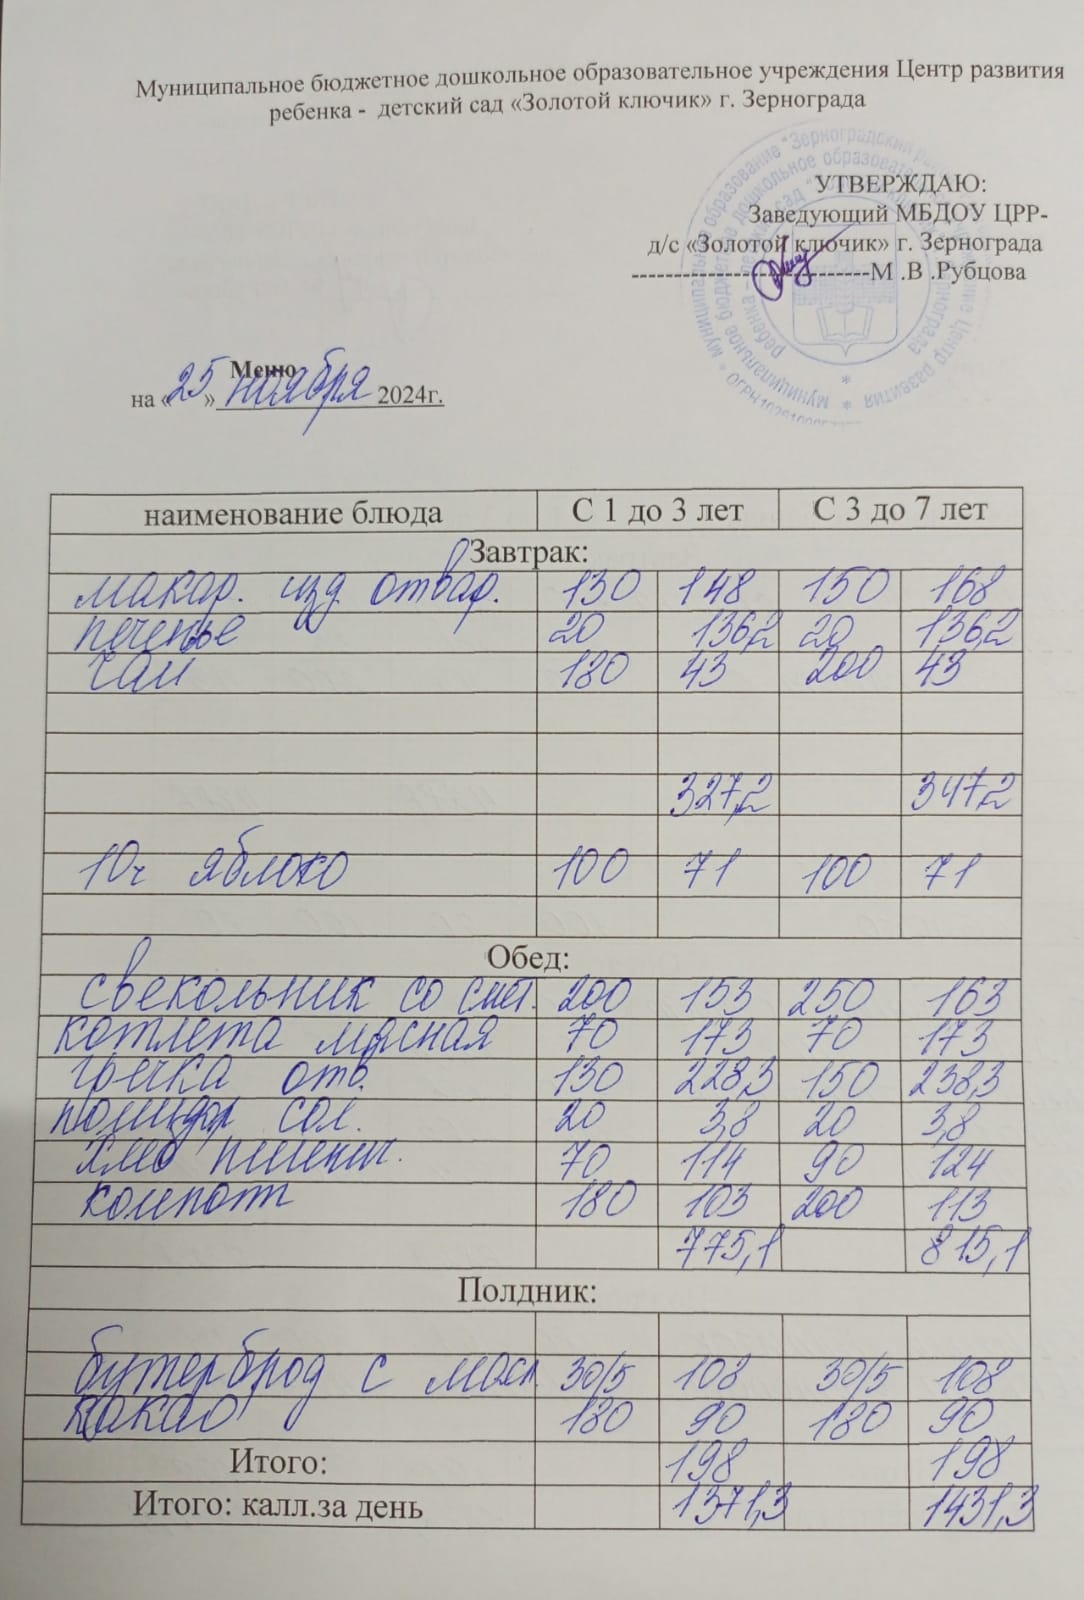 Муниципальное бюджетное дошкольное образовательное учреждения Центр развития
ребенка - детский сад «Золотой ключик» г. Зернограда
УТВЕРЖДАЮ:
Заведующий МБДОУ ЦРР-
д/с «Золотой ключик» г. Зернограда
----------------------------М .В .Рубцова
Меню
на «25» ноября 2024г.
наименование блюда С 1 до 3 лет С 3 до 7 лет
Завтрак:
макар. изд отвар. 130 148 150 168
печенье 20 136,2 20 136,2
чай 180 43 200 43
327,2 347,2
10ч яблоко 100 71 100 71
Обед:
свекольник со смет. 200 153 250 163
котлета мясная 70 173 70 173
гречка отв. 130 228,3 150 238,3
помидор сол. 20 3,8 20 3,8
хлеб пшенич. 70 114 90 124
компот 180 103 200 113
775,1 815,1
Полдник:
бутерброд с масл 30/5 108 30/5 108
какао 180 90 180 90
Итого: 198 198
Итого: калл.за день 1371,3 1431,3